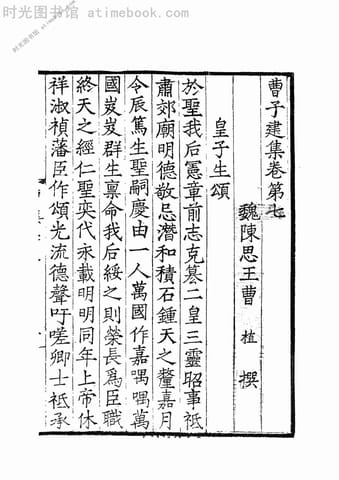 时光图书馆 www.atimebook.com
曹子建集卷第七
魏陳思王曹植撰
皇子生頌
於聖我后憲章前志克纂二皇三靈昭事祗
肅郊廟明德敬忌潛和積石鍾天之釐嘉月
令辰篤生聖嗣慶由一人萬國作嘉喁喁萬
國岌岌群生禀命我后綏之則榮長爲臣職
終天之經仁聖奕代永載明明同年上帝休
祥淑禎藩臣作頌光流德聲吁嗟卿士祗承